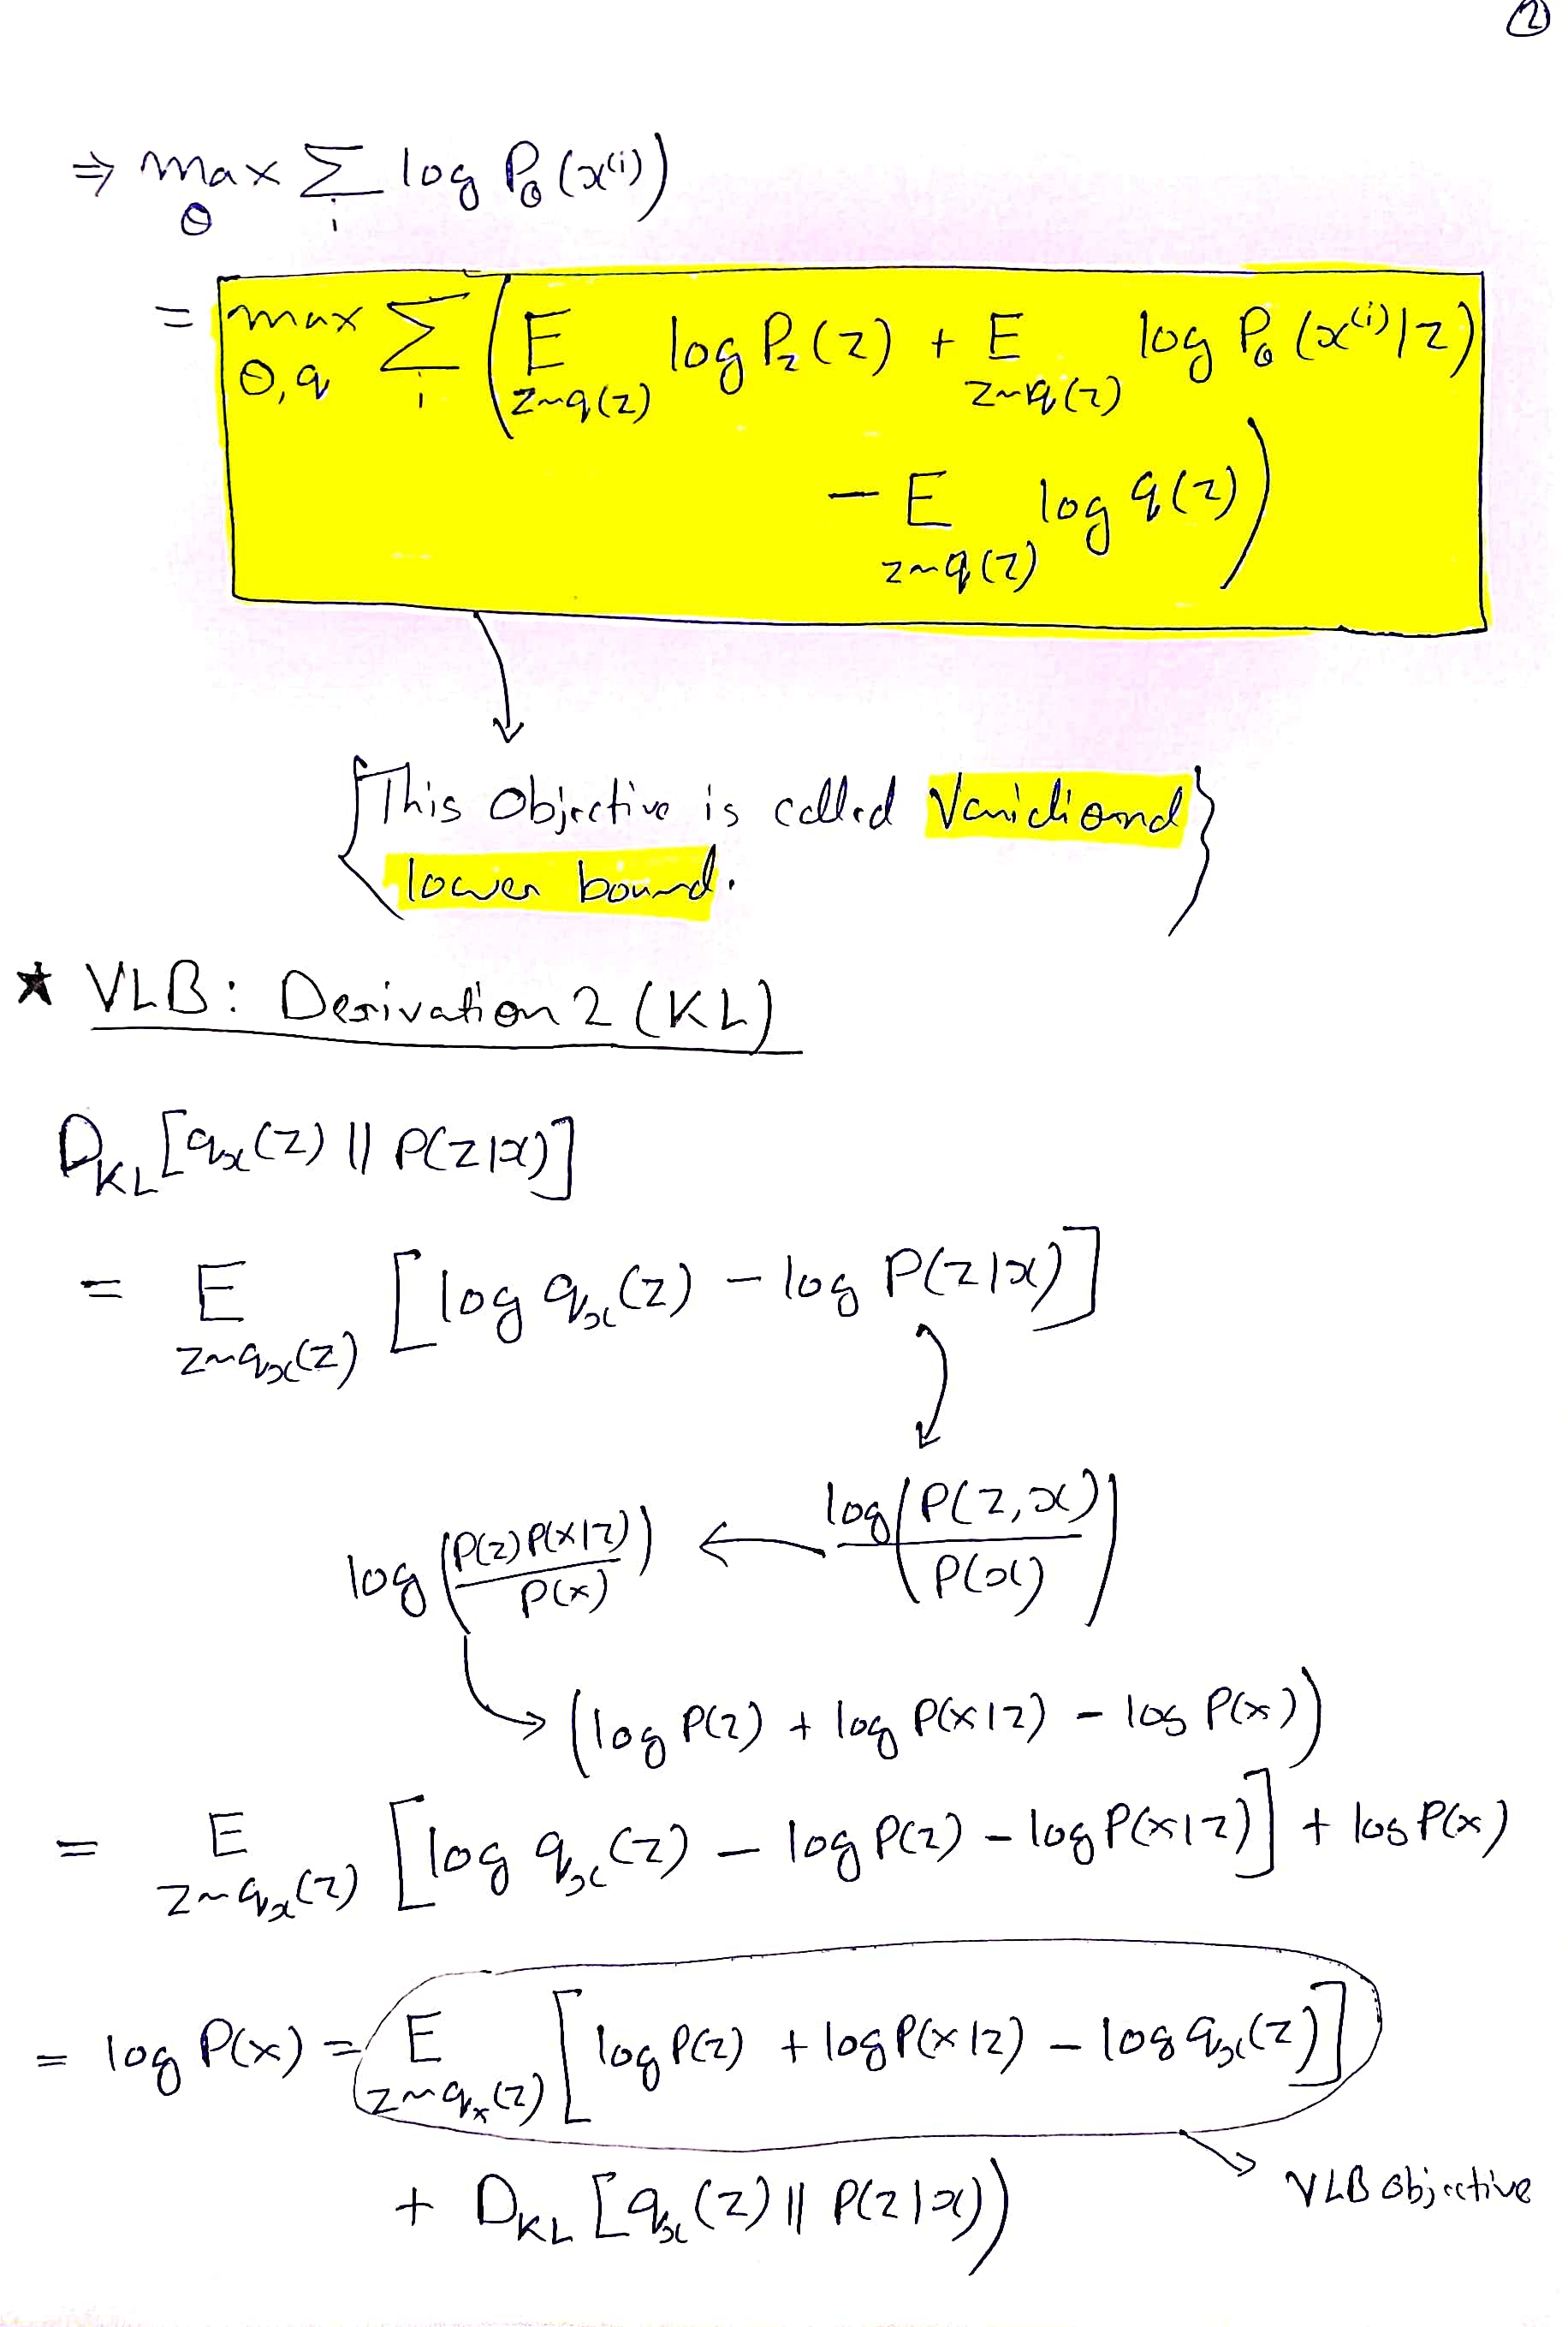 ②
⇒ max_θ Σ_i log P_θ(x^(i))
= max_{θ,q} Σ_i ( E_{z~q(z)} log P_z(z) + E_{z~q(z)} log P_θ(x^(i)|z)
− E_{z~q(z)} log q(z) )
{This Objective is called Variational
lower bound.}
★ VLB: Derivation 2 (KL)
D_KL [q_x(z) || P(z|x)]
= E_{z~q_x(z)} [log q_x(z) − log P(z|x)]
log (P(z) P(x|z) / P(x)) ← log (P(z,x) / P(x))
→ (log P(z) + log P(x|z) − log P(x))
= E_{z~q_x(z)} [log q_x(z) − log P(z) − log P(x|z)] + log P(x)
= log P(x) = E_{z~q_x(z)} [log P(z) + log P(x|z) − log q_x(z)]
+ D_KL [q_x(z) || P(z|x)) → VLB objective